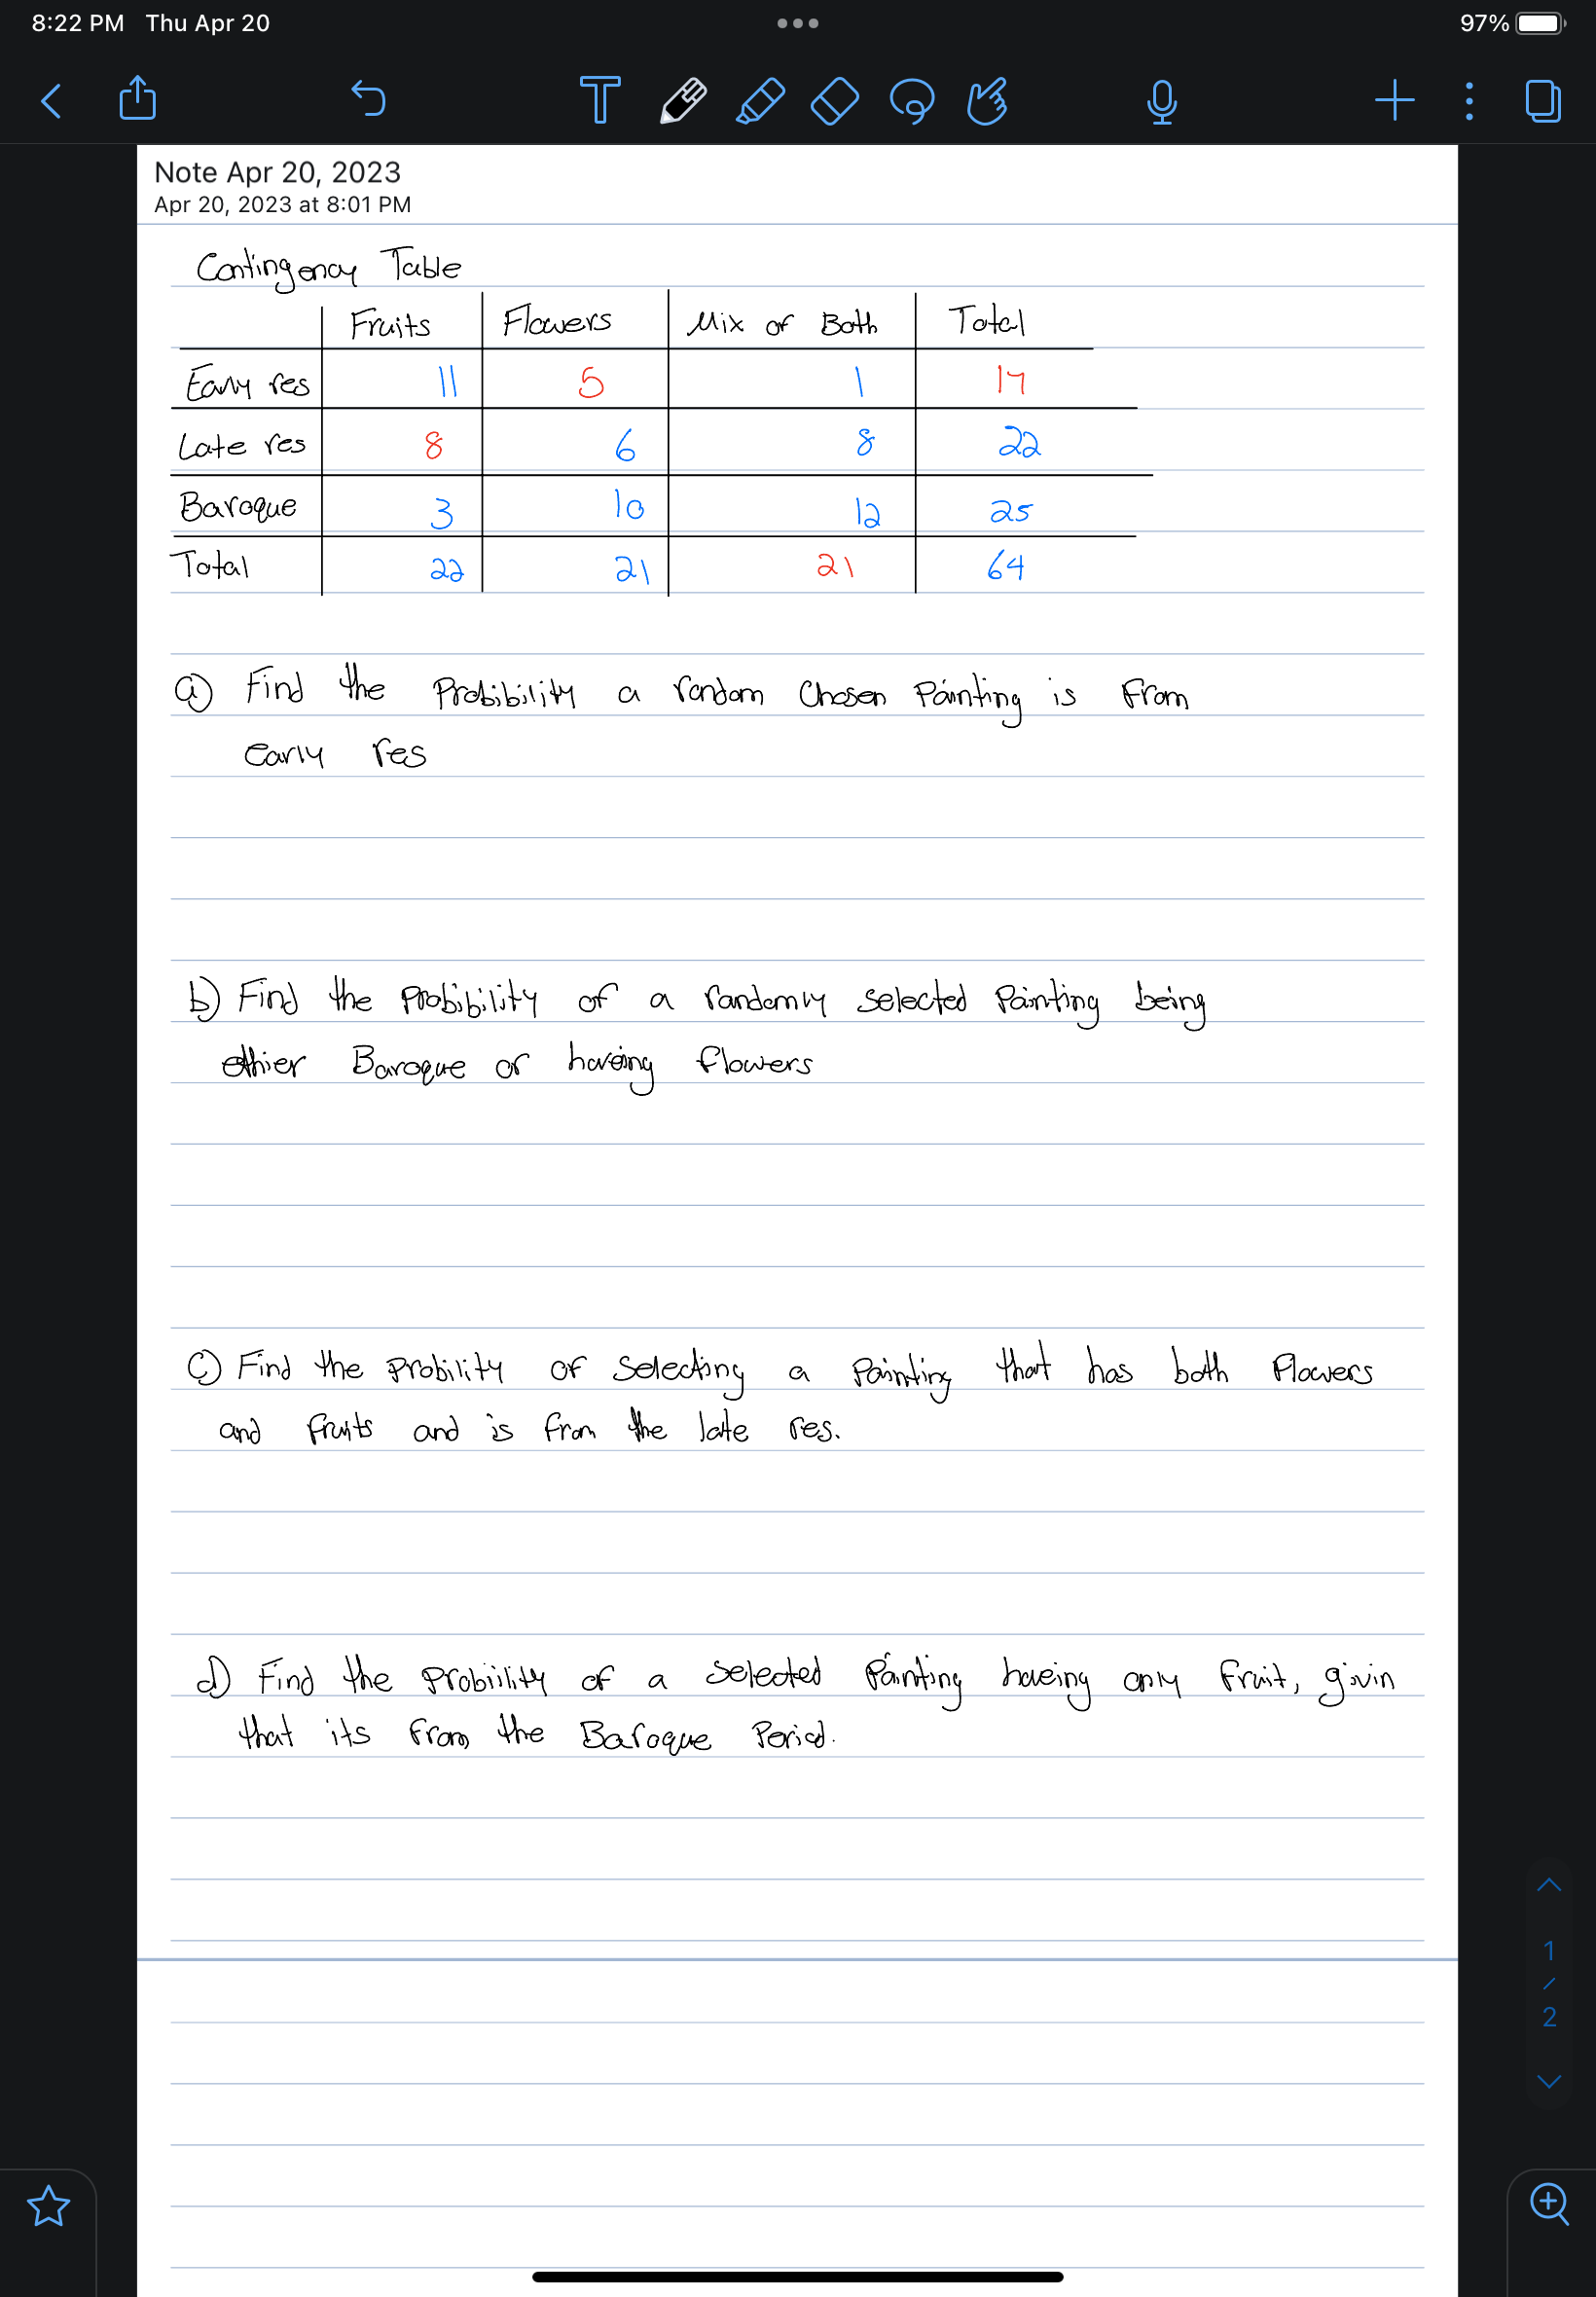 8:22 PM Thu Apr 20 97%
T
Note Apr 20, 2023
Apr 20, 2023 at 8:01 PM
Contingency Table
Fruits Flowers Mix of Both Total
Early res 11 5 1 17
Late res 8 6 8 22
Baroque 3 10 12 25
Total 22 21 21 64
a) Find the Probibility a random Chosen Painting is from
early res
b) Find the Probibility of a randomly selected Painting being
ethier Baroque or having flowers
c) Find the Probility of Selecting a Painting that has both Flowers
and fruits and is from the late res.
d) Find the Probiility of a selected Painting haveing only fruit, givin
that its from the Baroque Period.
1
/
2